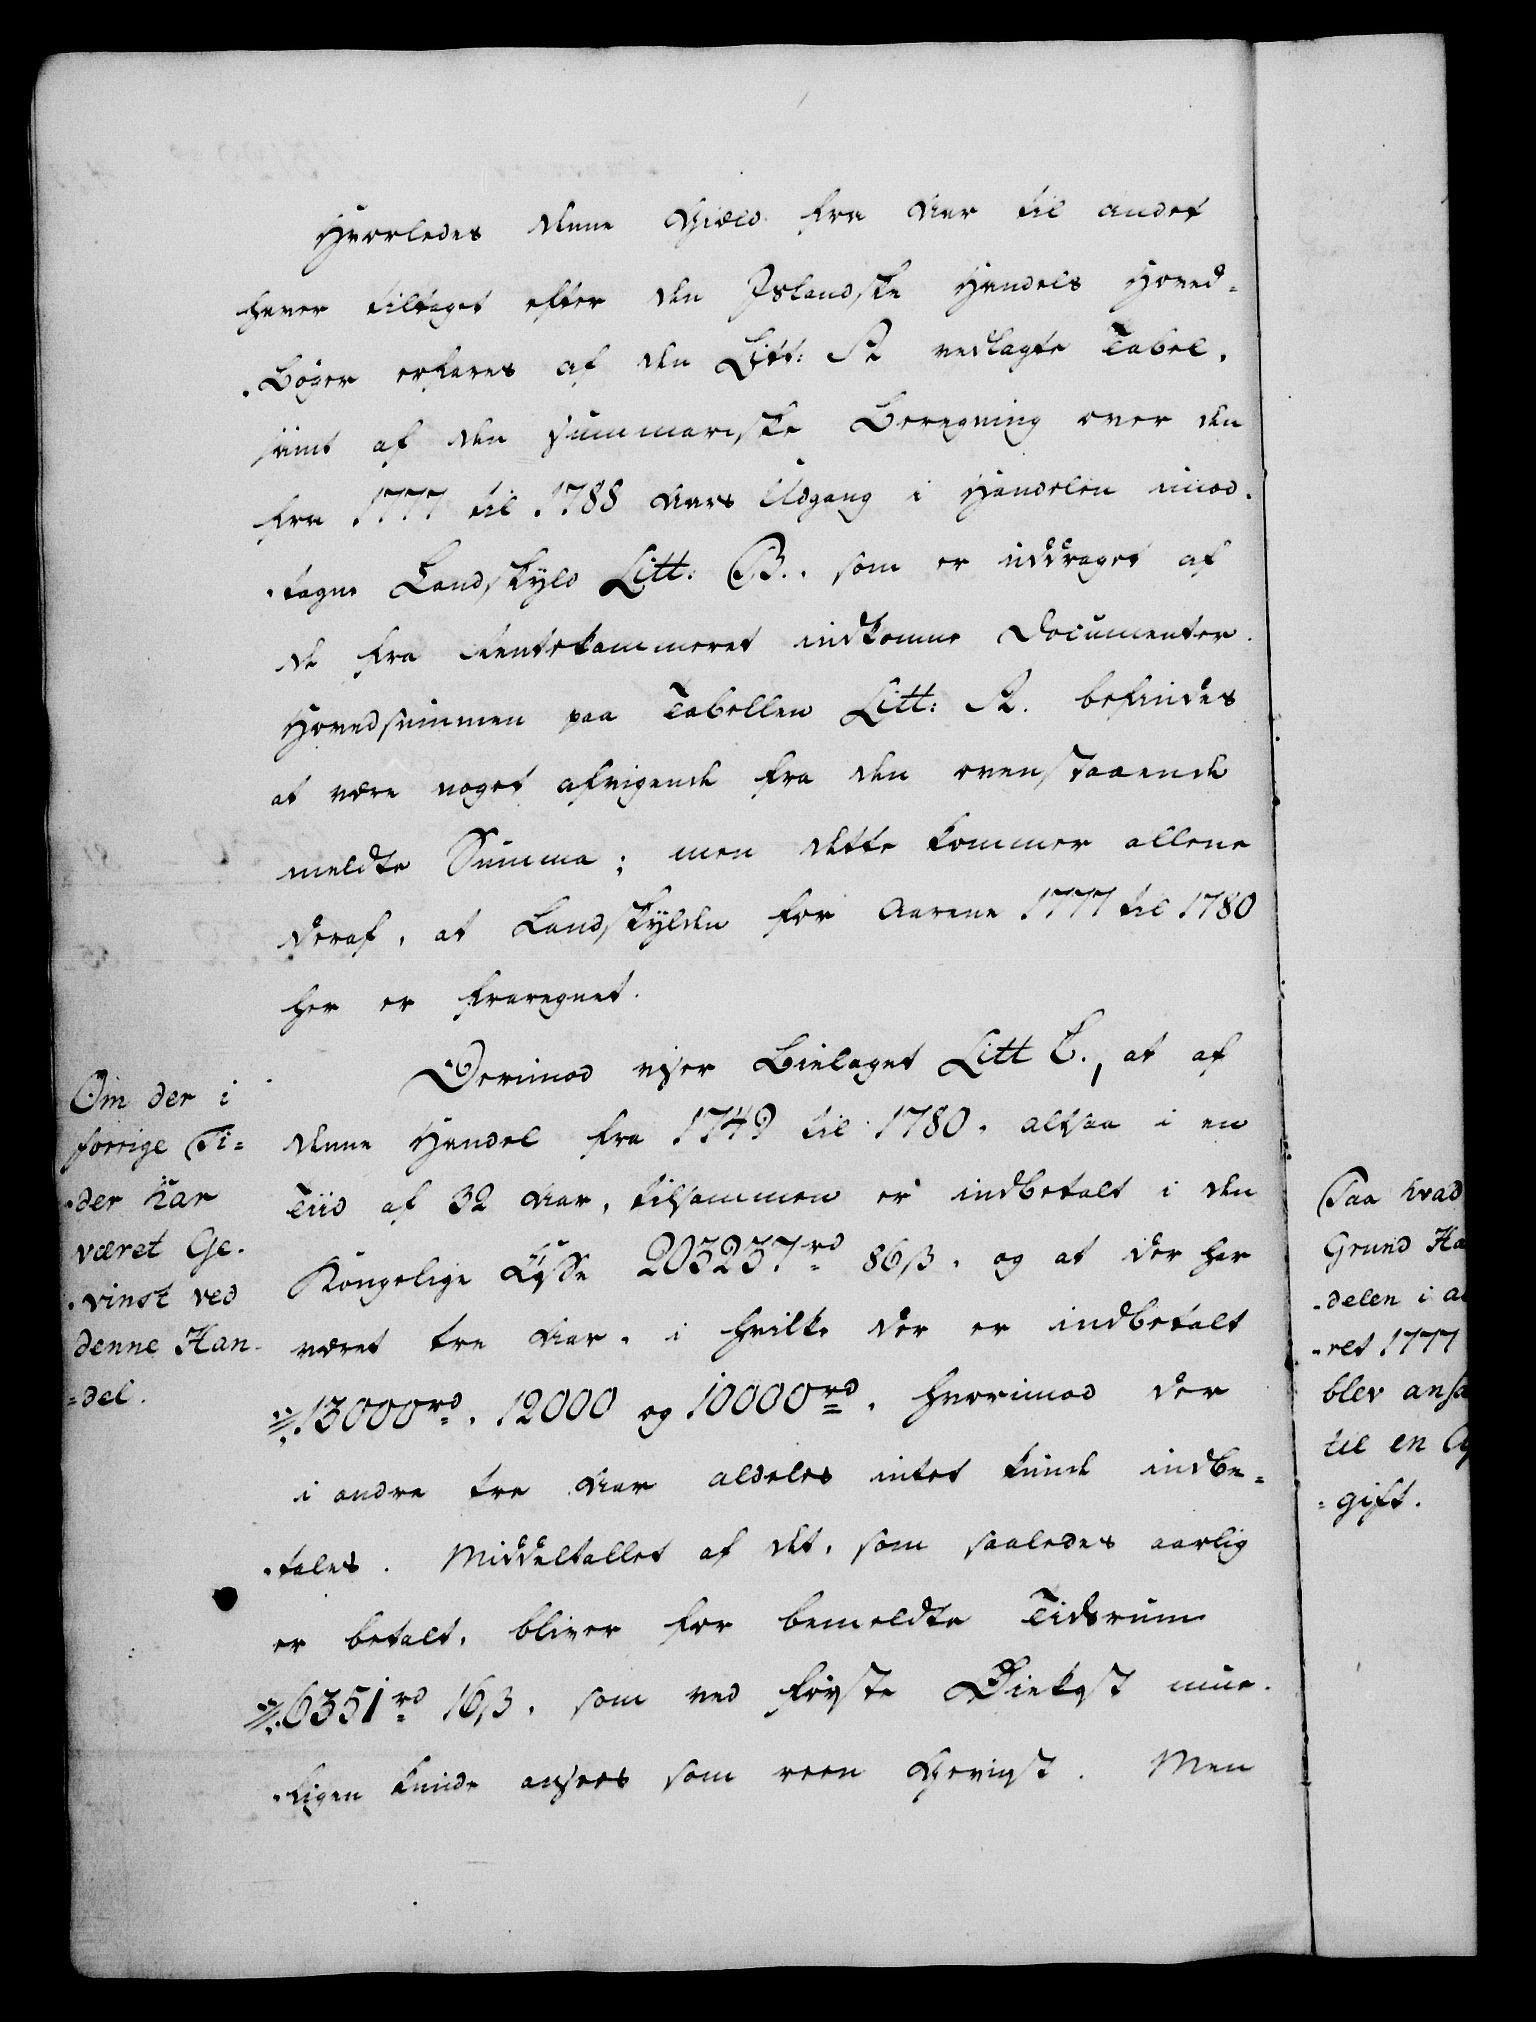 Hvorledes denne Giæld fra Aar til andet
haver tiltaget efter den Islandske Handels Hoved-
-Bøger erfares af den Litt: A vedlagte Tabel,
samt af den summariske Beregning over den
fra 1777 til 1788 Aars Udgang i Handelen imod-
-tagne Landskyld Litt: B., som er uddraget af
de fra Rentekammeret indkomne Documenter.
Hovedsummen paa Tabellen Litt: A. befindes
at være noget afvigende fra den ovenstaaende
meldte Summa; men dette kommer allene
deraf, at Landskylden for Aarene 1777 til 1780
her er fraregnet.
Om der i
forrige Ti=
-der har
været Ge-
-vinst ved
denne Han-
=del.
Derimod viser Bielaget Litt C., at af
denne Handel fra 1749 til 1780, altsaa i en
Tiid af 32 Aar, tilsammen er indbetalt i den
Kongelige Casse 203237 rd 86 ß, og at der har
været tre Aar, i hvilke der er indbetalt
13000 rd, 12000 og 10000 rd, hvorimod der
i andre tre Aar aldeles intet kunde indbe=
-tales. Middeltallet af det, som saaledes aarlig
er betalt, bliver for bemeldte Tidsrum
6351 rd 16 ß, som ved første Øiekast mue-
-ligen kunde ansees som reen Gevinst. Men
Paa hvad
Grund Ha
-delen i a
-ret 1777
blev ansa
til en A
=gift.